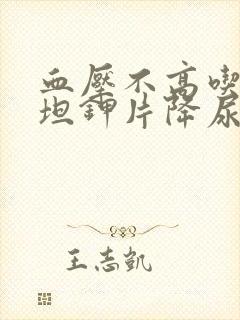 血壓不高喫
坦鉀片降尿
王志凱